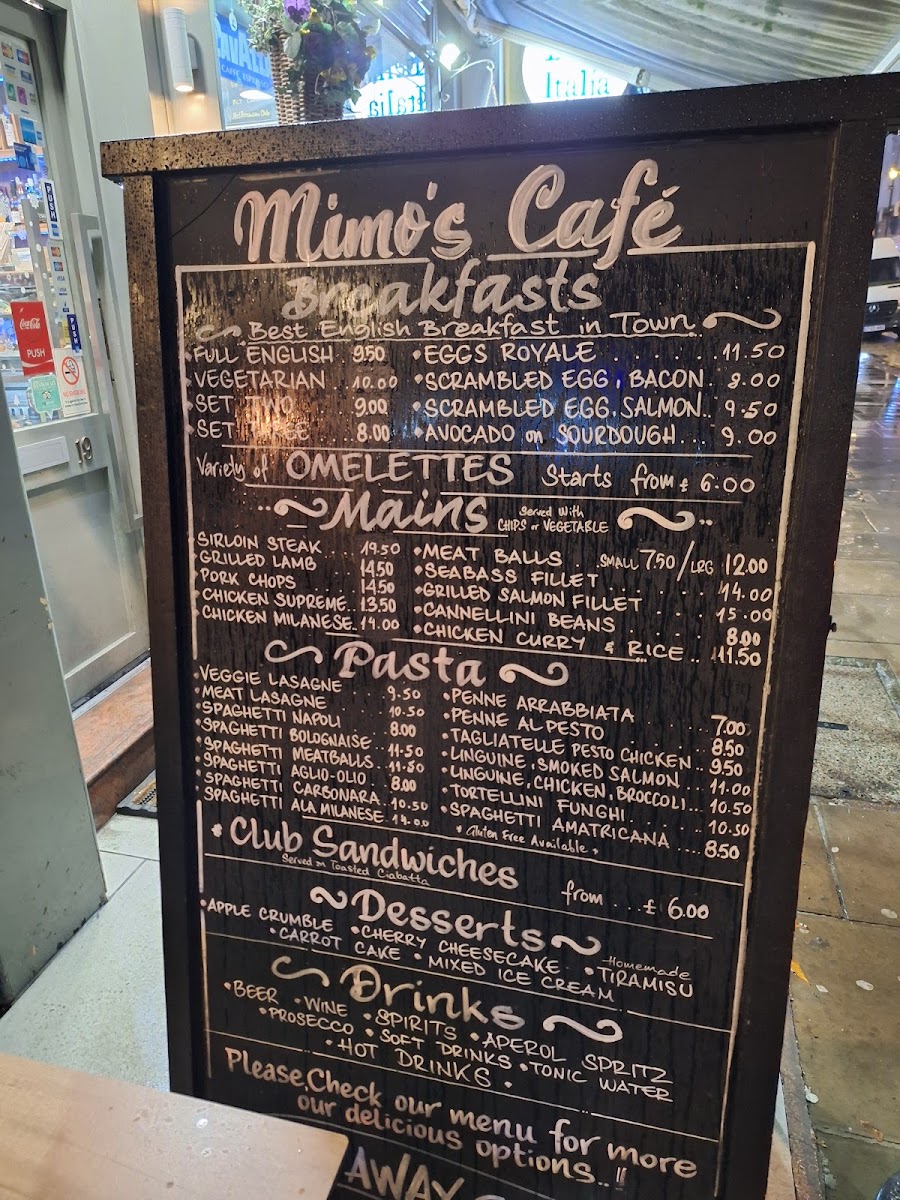 AVAZZA
Italia
Italia
PUSH
Coca-Cola
PUSH
PUSH
VISA
19
Mimo's Café
Breakfasts
Best English Breakfast in Town
• FULL ENGLISH . 9.50
• VEGETARIAN . . . 10.00
• SET TWO . . . 9.00
• SET THREE . . . 8.00
• EGGS ROYALE . . . . . . . 11.50
• SCRAMBLED EGG, BACON . 9.00
• SCRAMBLED EGG, SALMON . . 9.50
• AVOCADO on SOURDOUGH . . . 9.00
Variety of OMELETTES Starts from £ 6.00
Mains
Served With
CHIPS or VEGETABLE
SIRLOIN STEAK . . . 19.50
• GRILLED LAMB . . . 14.50
• PORK CHOPS . . . 14.50
• CHICKEN SUPREME . . 13.50
• CHICKEN MILANESE . 14.00
• MEAT BALLS . . SMALL 7.50 / LRG 12.00
• SEABASS FILLET . . . . . 14.00
• GRILLED SALMON FILLET . . . 15.00
• CANNELLINI BEANS . . . . 8.00
• CHICKEN CURRY & RICE . . 11.50
Pasta
• VEGGIE LASAGNE . . 9.50
• MEAT LASAGNE . . . 10.50
• SPAGHETTI NAPOLI . . 8.00
• SPAGHETTI BOLOGNAISE . . 11.50
• SPAGHETTI MEATBALLS . . 11.50
• SPAGHETTI AGLIO-OLIO . . 8.00
• SPAGHETTI CARBONARA . 10.50
SPAGHETTI ALA MILANESE . 14.00
• PENNE ARRABBIATA . . . . . 7.00
• PENNE AL PESTO . . . . . 8.50
• TAGLIATELLE PESTO CHICKEN . . 9.50
• LINGUINE, SMOKED SALMON . . . 11.00
• LINGUINE, CHICKEN, BROCCOLI . . . 10.50
• TORTELLINI FUNGHI . . . . . 10.50
• SPAGHETTI AMATRICANA . . . . 8.50
* Gluten Free Available *
• Club Sandwiches from . . . £ 6.00
Served on Toasted Ciabatta
Desserts
• APPLE CRUMBLE • CHERRY CHEESECAKE • Homemade TIRAMISU
• CARROT CAKE • MIXED ICE CREAM
Drinks
• BEER • WINE • SPIRITS • APEROL SPRITZ
• PROSECCO • SOFT DRINKS • TONIC WATER
• HOT DRINKS •
Please, Check our menu for more
our delicious options..!!
AWAY